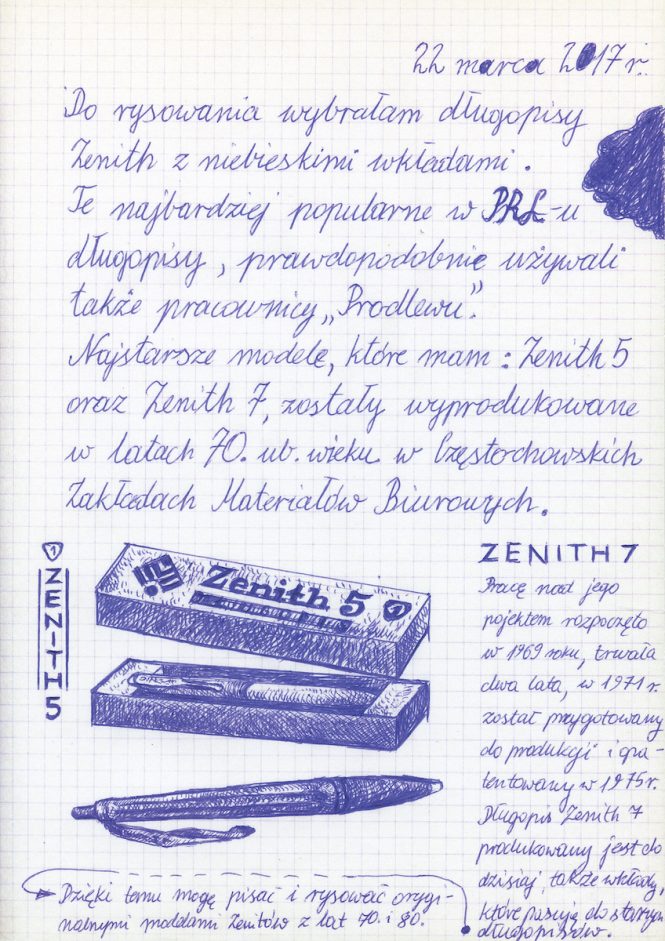 22 marca 2017 r.
Do rysowania wybrałam długopisy
Zenith z niebieskimi wkładami.
Te najbardziej popularne w PRL-u
długopisy, prawdopodobnie używali
także pracownicy „Prodlewu”.
Najstarsze modele, które mam: Zenith 5
oraz Zenith 7, zostały wyprodukowane
w latach 70. ub. wieku w Częstochowskich
Zakładach Materiałów Biurowych.
1
ZENITH 5
Zenith 5
ZENITH 7
Pracę nad jego
pojektem rozpoczęto
w 1969 roku, trwała
dwa lata, w 1971 r.
został przygotowany
do produkcji i opa-
tentowany w 1975r.
Długopis Zenith 7
produkowany jest do
dzisiaj, także wkłady,
które pasują do starych
długopisów.
Dzięki temu mogę pisać i rysować orygi-
nalnymi modelami Zenitów z lat 70. i 80.